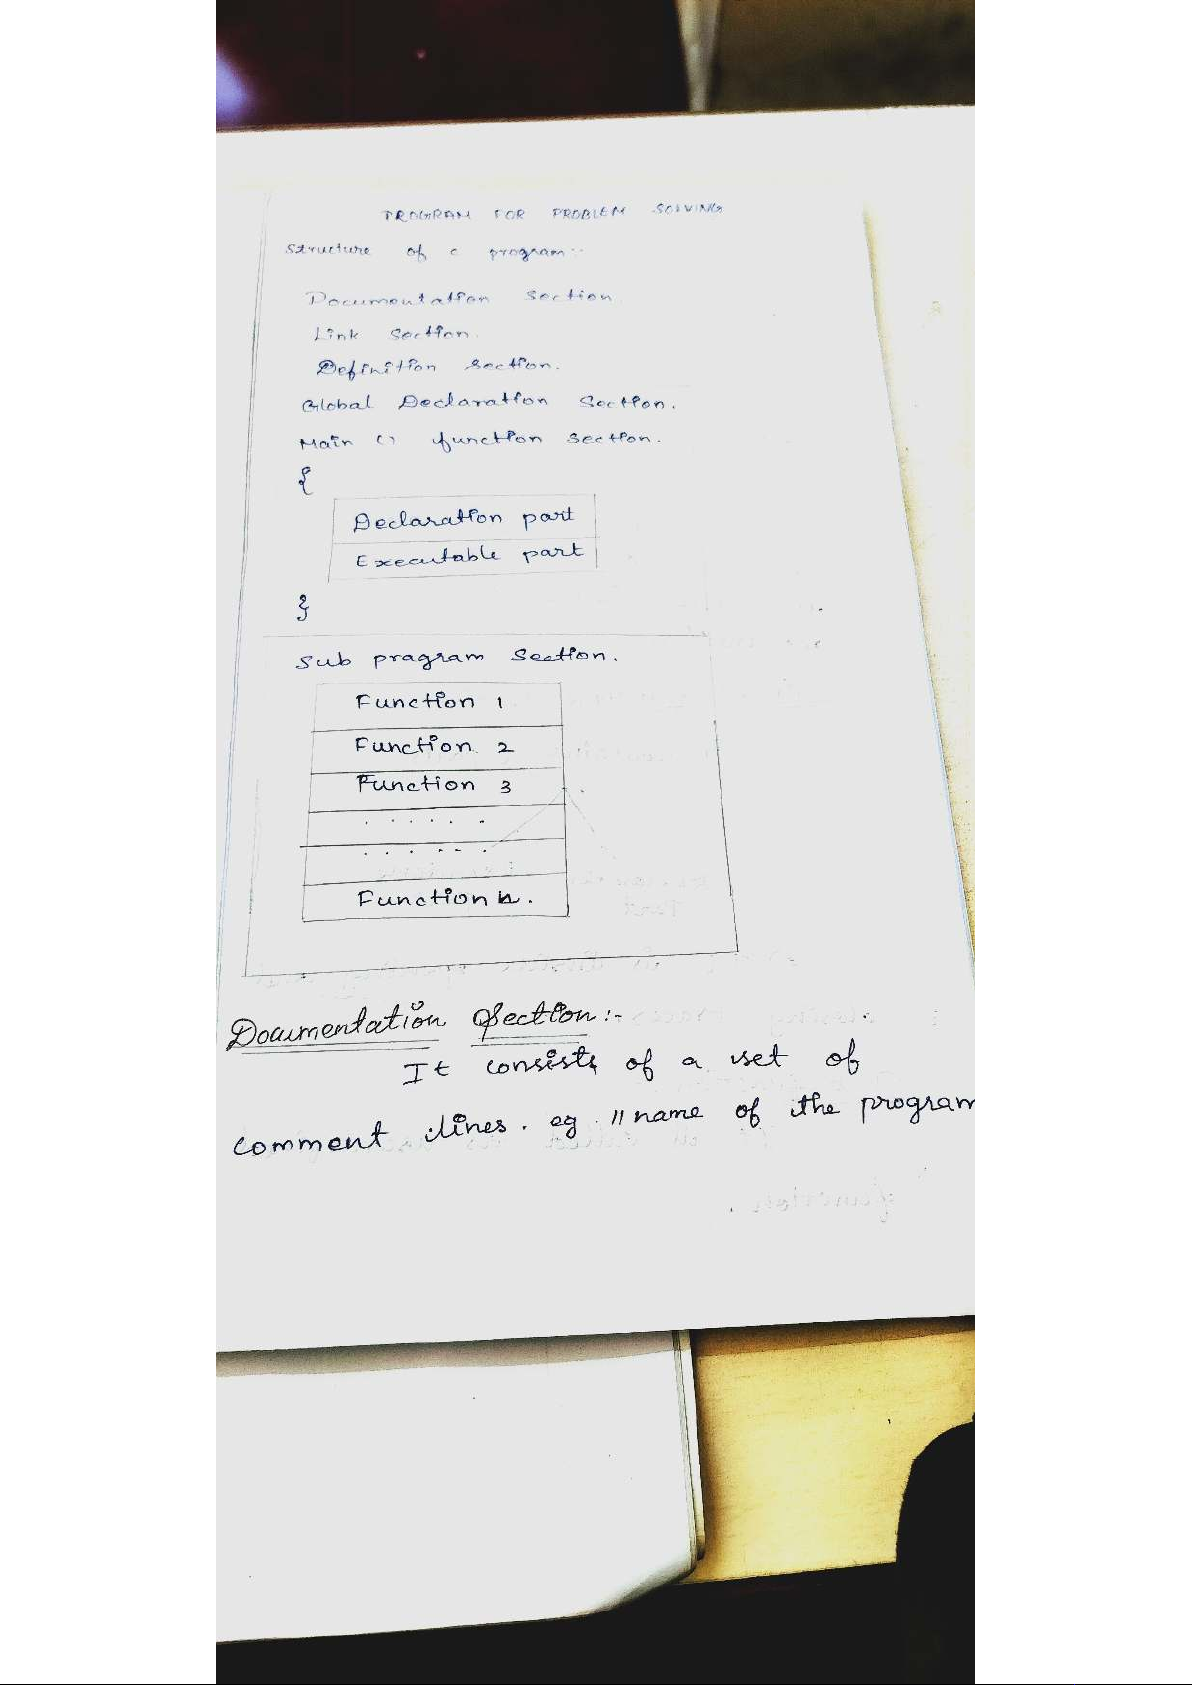 PROGRAM FOR PROBLEM SOLVING
Structure of c program:-
Documentation section
Link section.
Definition section.
Global Declaration Section.
Main () function section.
{
Declaration part
Executable part
}
Sub pragram Section.
Function 1
Function 2
Function 3
. . . . . .
. . . . . .
Function n.
Documentation Section:-
It consists of a set of
comment lines. eg. // name of the program